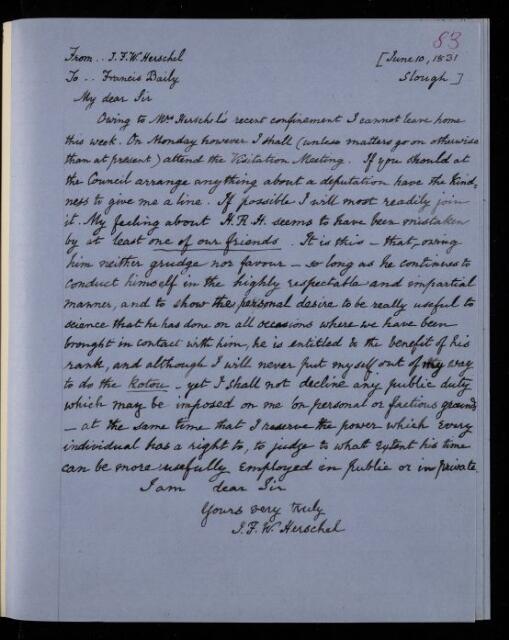 83
From .. J.F.W. Herschel [June 10, 1831
To .. Francis Baily Slough]
My dear Sir
Owing to Mrs Herschel's recent confinement I cannot leave home
this week. On Monday however I shall (unless matters go on otherwise
than at present) attend the Visitation Meeting. If you should at
the Council arrange anything about a deputation have the kind-
ness to give me a line. If possible I will most readily join
it. My feeling about H.R.H. seems to have been mistaken
by at least one of our friends. It is this – that, owing
him neither grudge nor favour – so long as he continues to
conduct himself in the highly respectable and impartial
manner, and to show the personal desire to be really useful to
science that he has done on all occasions where we have been
brought in contact with him, he is entitled to the benefit of his
rank, and although I will never put myself out of my way
to do the kotou – yet I shall not decline any public duty
which may be imposed on me on personal or factious grounds
– at the same time that I reserve the power which every
individual has a right to, to judge to what extent his time
can be more usefully employed in public or in private.
I am dear Sir
Yours very truly
J.F.W. Herschel